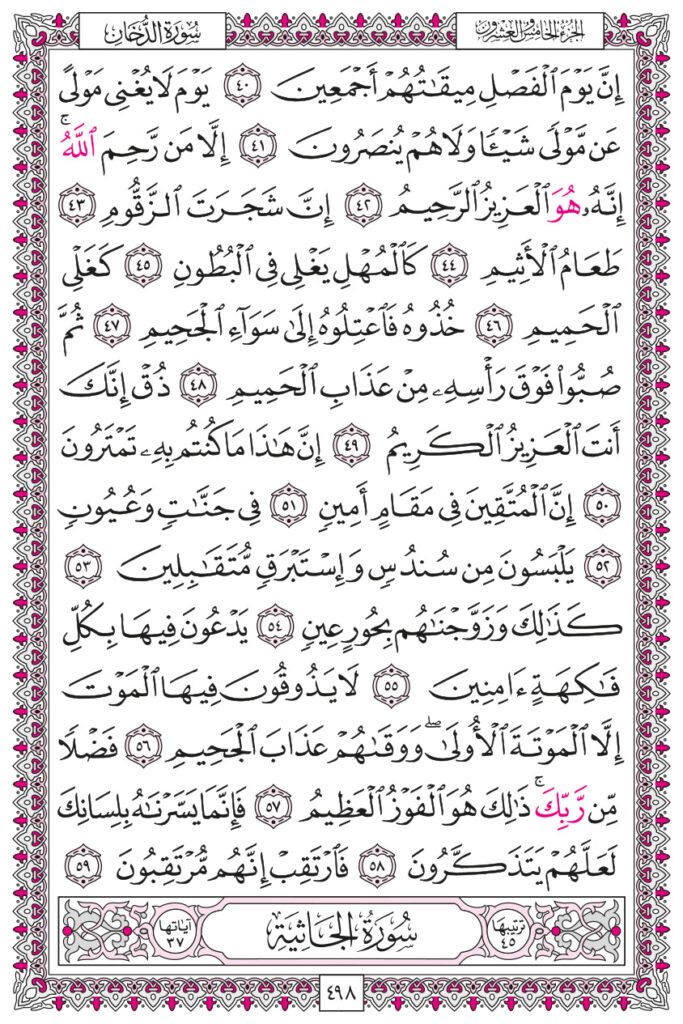 الجزء الخامس والعشرون
سورة الدخان
إِنَّ يَوْمَ ٱلْفَصْلِ مِيقَٰتُهُمْ أَجْمَعِينَ ٤٠ يَوْمَ لَا يُغْنِى مَوْلًى
عَن مَّوْلًى شَيْـًٔا وَلَا هُمْ يُنصَرُونَ ٤١ إِلَّا مَن رَّحِمَ ٱللَّهُ ۚ
إِنَّهُۥ هُوَ ٱلْعَزِيزُ ٱلرَّحِيمُ ٤٢ إِنَّ شَجَرَتَ ٱلزَّقُّومِ ٤٣
طَعَامُ ٱلْأَثِيمِ ٤٤ كَٱلْمُهْلِ يَغْلِى فِى ٱلْبُطُونِ ٤٥ كَغَلْىِ
ٱلْحَمِيمِ ٤٦ خُذُوهُ فَٱعْتِلُوهُ إِلَىٰ سَوَآءِ ٱلْجَحِيمِ ٤٧ ثُمَّ
صُبُّوا۟ فَوْقَ رَأْسِهِۦ مِنْ عَذَابِ ٱلْحَمِيمِ ٤٨ ذُقْ إِنَّكَ
أَنتَ ٱلْعَزِيزُ ٱلْكَرِيمُ ٤٩ إِنَّ هَٰذَا مَا كُنتُم بِهِۦ تَمْتَرُونَ
٥٠ إِنَّ ٱلْمُتَّقِينَ فِى مَقَامٍ أَمِينٍ ٥١ فِى جَنَّٰتٍ وَعُيُونٍ
٥٢ يَلْبَسُونَ مِن سُندُسٍ وَإِسْتَبْرَقٍ مُّتَقَٰبِلِينَ ٥٣
كَذَٰلِكَ وَزَوَّجْنَٰهُم بِحُورٍ عِينٍ ٥٤ يَدْعُونَ فِيهَا بِكُلِّ
فَٰكِهَةٍ ءَامِنِينَ ٥٥ لَا يَذُوقُونَ فِيهَا ٱلْمَوْتَ
إِلَّا ٱلْمَوْتَةَ ٱلْأُولَىٰ ۖ وَوَقَىٰهُمْ عَذَابَ ٱلْجَحِيمِ ٥٦ فَضْلًا
مِّن رَّبِّكَ ۚ ذَٰلِكَ هُوَ ٱلْفَوْزُ ٱلْعَظِيمُ ٥٧ فَإِنَّمَا يَسَّرْنَٰهُ بِلِسَانِكَ
لَعَلَّهُمْ يَتَذَكَّرُونَ ٥٨ فَٱرْتَقِبْ إِنَّهُم مُّرْتَقِبُونَ ٥٩
ترتيبها ٤٥ سُورَةُ الجَاثِيَةِ آياتها ٣٧
٤٩٨